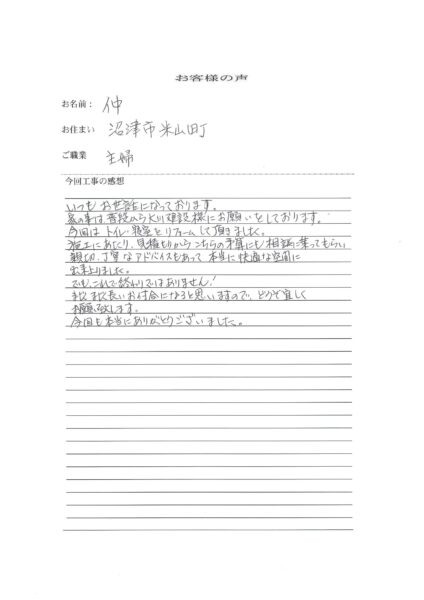 お客様の声
お名前： 仲
お住まい 沼津市米山町
ご職業 主婦
今回工事の感想
いつもお世話になっております。
家の事は普段からKJ建設様にお願いをしております。
今回はトイレ・寝室をリフォームして頂きました。
施工にあたり、見積りからこちらの予算にも相談に乗ってもらい
親切、丁寧なアドバイスもあって本当に快適な空間に
出来上りました。
でも、これで終わりではありません！
まだまだ長いお付合になると思いますので、どうぞ宜しく
お願い致します。
今回も本当にありがとうございました。